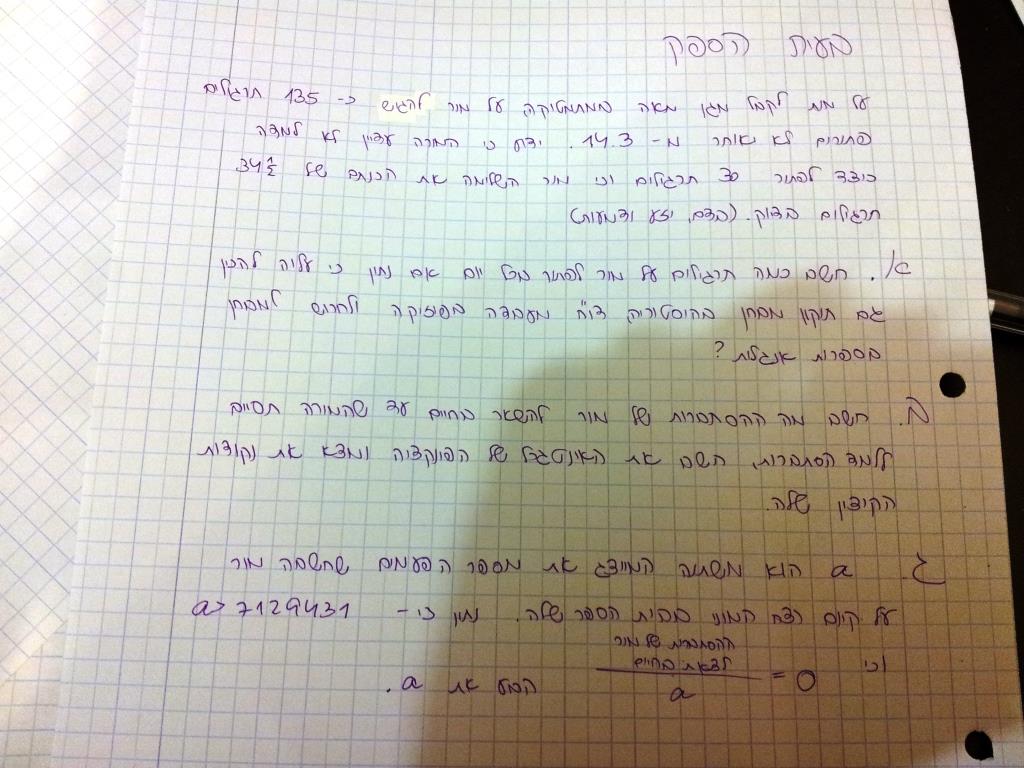 בעית הספק
על מנת לקבל מגן מאה במתמטיקה על מור להגיש כ- 135 תרגילים
פתורים לא יאוחר מ- 14.3. ידוע כי המורה עדיין לא למדה
כיצד לפתור 30 תרגילים וכי מור השלימה את הכנתם של 34½
תרגילים בדיוק. (בדם, יזע ודמעות)
א. חשב כמה תרגילים על מור לפתור מכל יום אם נתון כי עליה להכין
גם תיקון מבחן בהיסטוריה, דו"ח מעבדה בפיזיקה ולחרוש למבחן
בספרות אנגלית?
ב. חשב מה ההסתברות של מור להשאר בחיים עד שהמורה תסיים
ללמד הסתברות, חשב את האינטגרל של הפונקציה ומצא את נקודות
הקיצון שלה.
ג. a הוא משתנה המייצג את מספר הפעמים שחשבה מור
על קיום רצח המוני בבית הספר שלה. נתון כי - a>7129431
וכי ההסתברות של מור לצאת בחיים / a = 0 הבע את a.